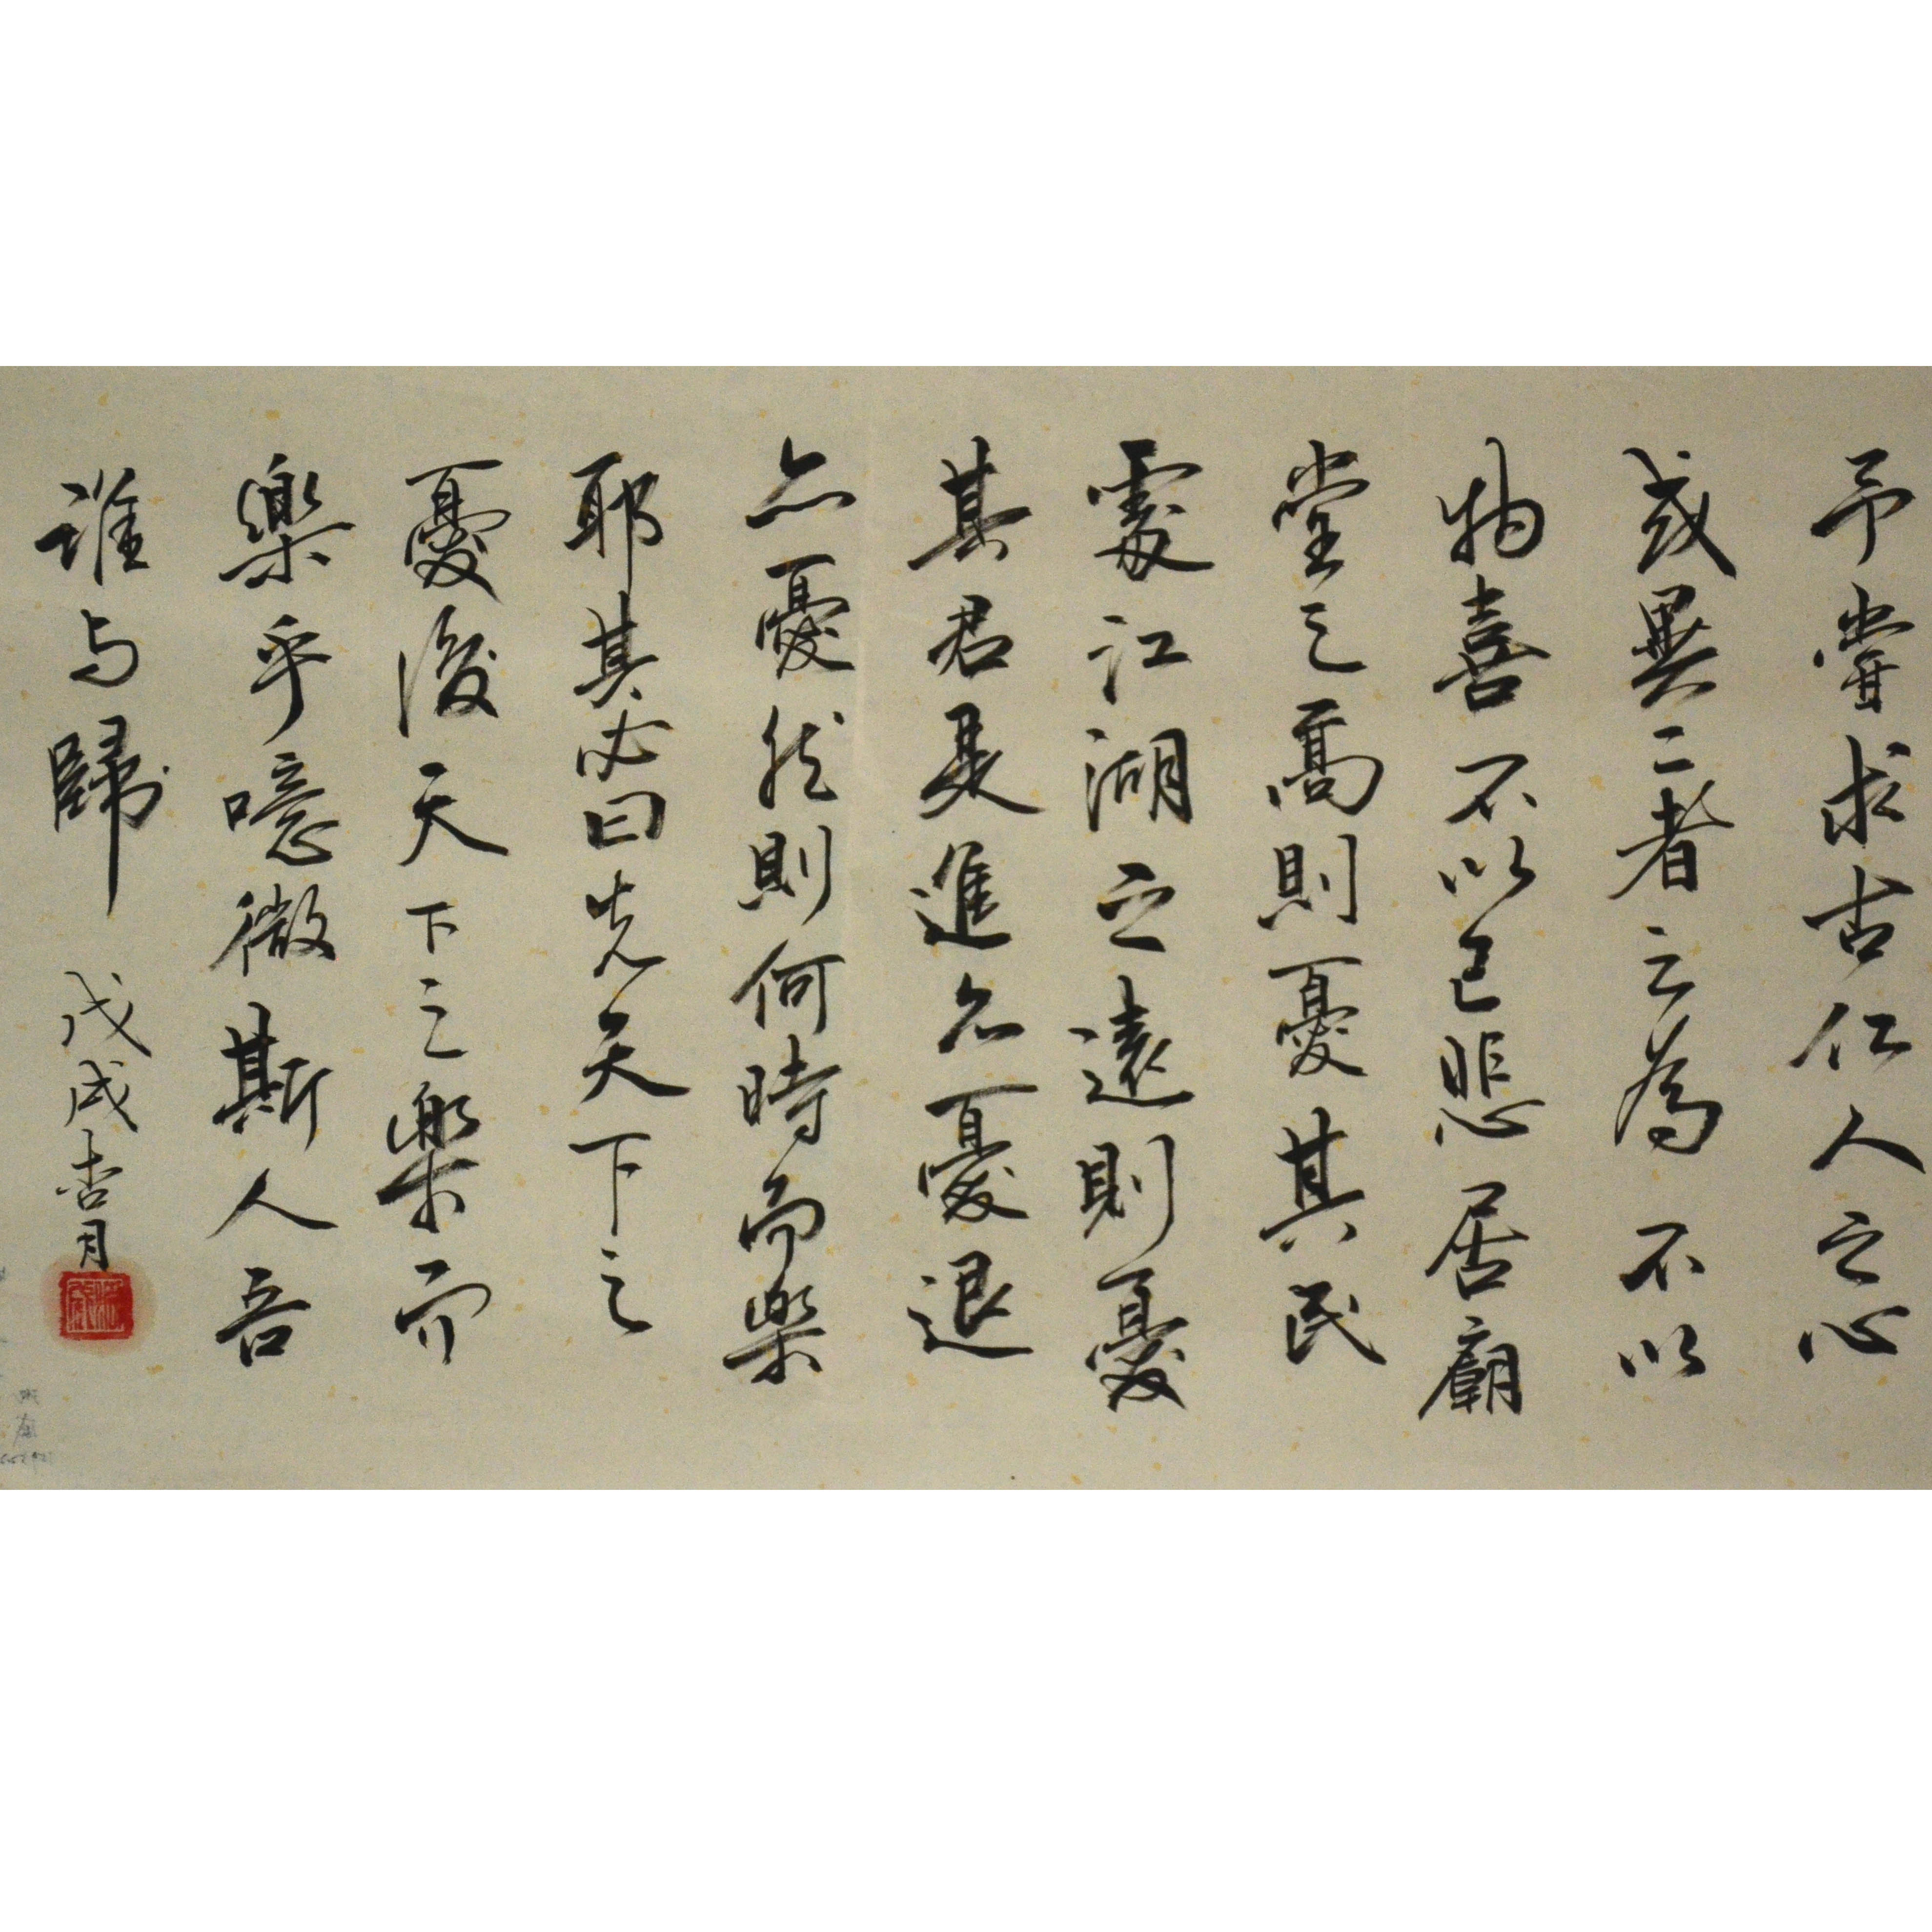 予嘗求古仁人之心
或異二者之為不以
物喜不以己悲居廟
堂之高則憂其民
處江湖之遠則憂
其君是進亦憂退
亦憂然則何時而樂
耶其必曰先天下之
憂後天下之樂而
樂乎噫微斯人吾
誰与歸
戊戌杏月